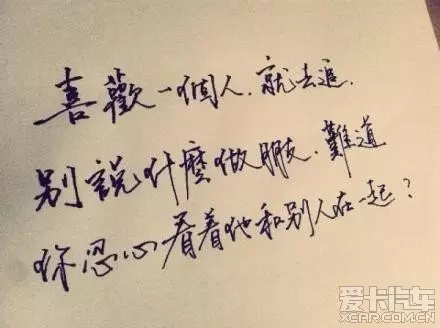 喜歡一個人.就去追.
别說什麼做朋友.難道
你忍心看着他和别人在一起?
爱卡汽车
XCAR.COM.CN